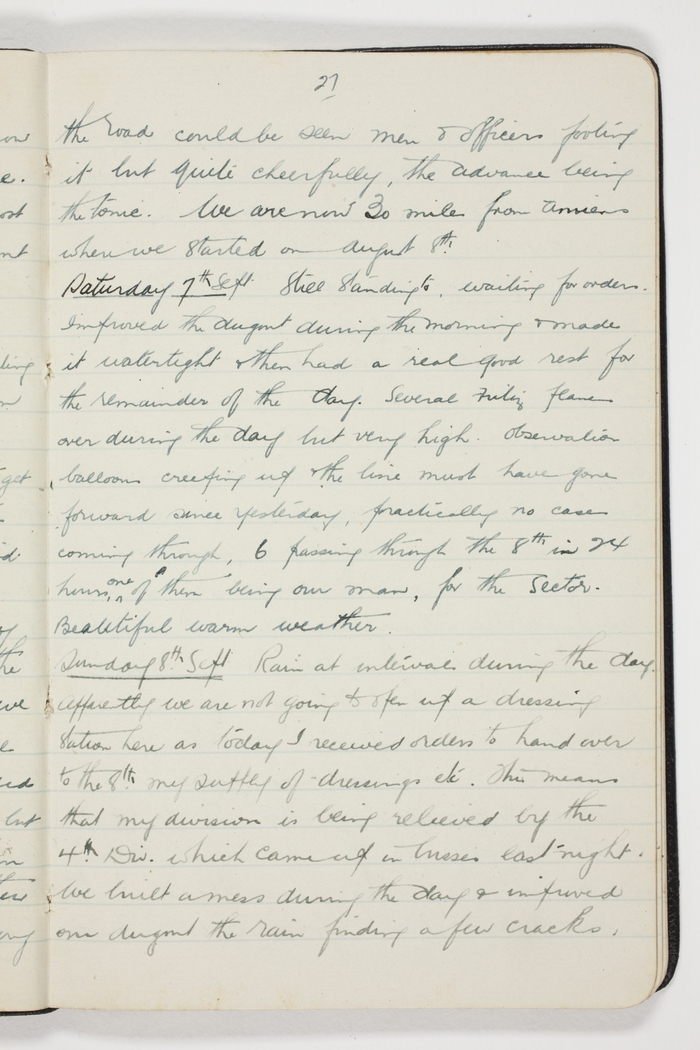 27
the road could be seen men & officers footing
it but quite cheerfully, the advance being
the tonic. We are now 30 miles from Amiens
when we started on August 8th.
Saturday 7th Sept Still standing to, waiting for orders.
Improved the dugout during the morning & made
it watertight & then had a real good rest for
the remainder of the day. Several Fritz planes
over during the day but very high. Observation
balloons creeping up & the line must have gone
forward since yesterday, practically no cases
coming through, 6 passing through the 8th in 24
hours, one of them being our man, for the Sector.
Beautiful warm weather.
Sunday 8th Sept Rain at intervals during the day.
Apparently we are not going to open up a dressing
station here as today I received orders to hand over
to the 8th my supply of dressings etc. This means
that my division is being relieved by the
4th Div. which came up in busses last night.
We built a mess during the day & improved
our dugout the rain finding a few cracks.